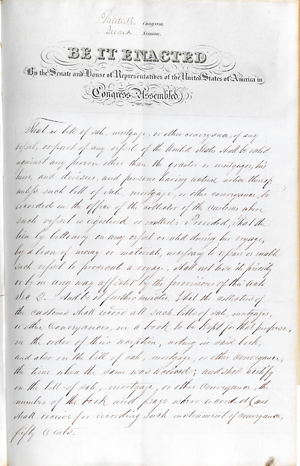 Thirtieth Congress,
Second Session,
BE IT ENACTED
By the Senate and House of Representatives of the United States of America in
Congress Assembled,
That no bill of sale, mortgage, or other conveyance, of any
vessel, or part of any vessel of the United States shall be valid
against any person other than the grantor or mortgagor, his
heirs, and devisees, and persons having actual notice thereof
unless such bill of sale, mortgage, or other conveyance, be
recorded in the office of the collector of the customs where
such vessel is registered or enrolled: Provided, That the
lien by bottomry on any vessel created during her voyage,
by a loan of money or materials, necessary to repair or enable
such vessel to prosecute a voyage, shall not lose its priority
or be in any way affected by the provisions of this act.
Sec 2. And be it further enacted, That the collectors of
the customs shall record all such bills of sale, mortgages,
or other conveyances, in a book to be kept for that purpose,
in the order of their reception, noting in said book,
and also on the bill of sale, mortgage, or other conveyance,
the time when the same was received; and shall certify
on the bill of sale, mortgage, or other conveyance, the
number of the book and page where recorded; and
shall receive for recording such instrument of conveyance,
fifty cents.